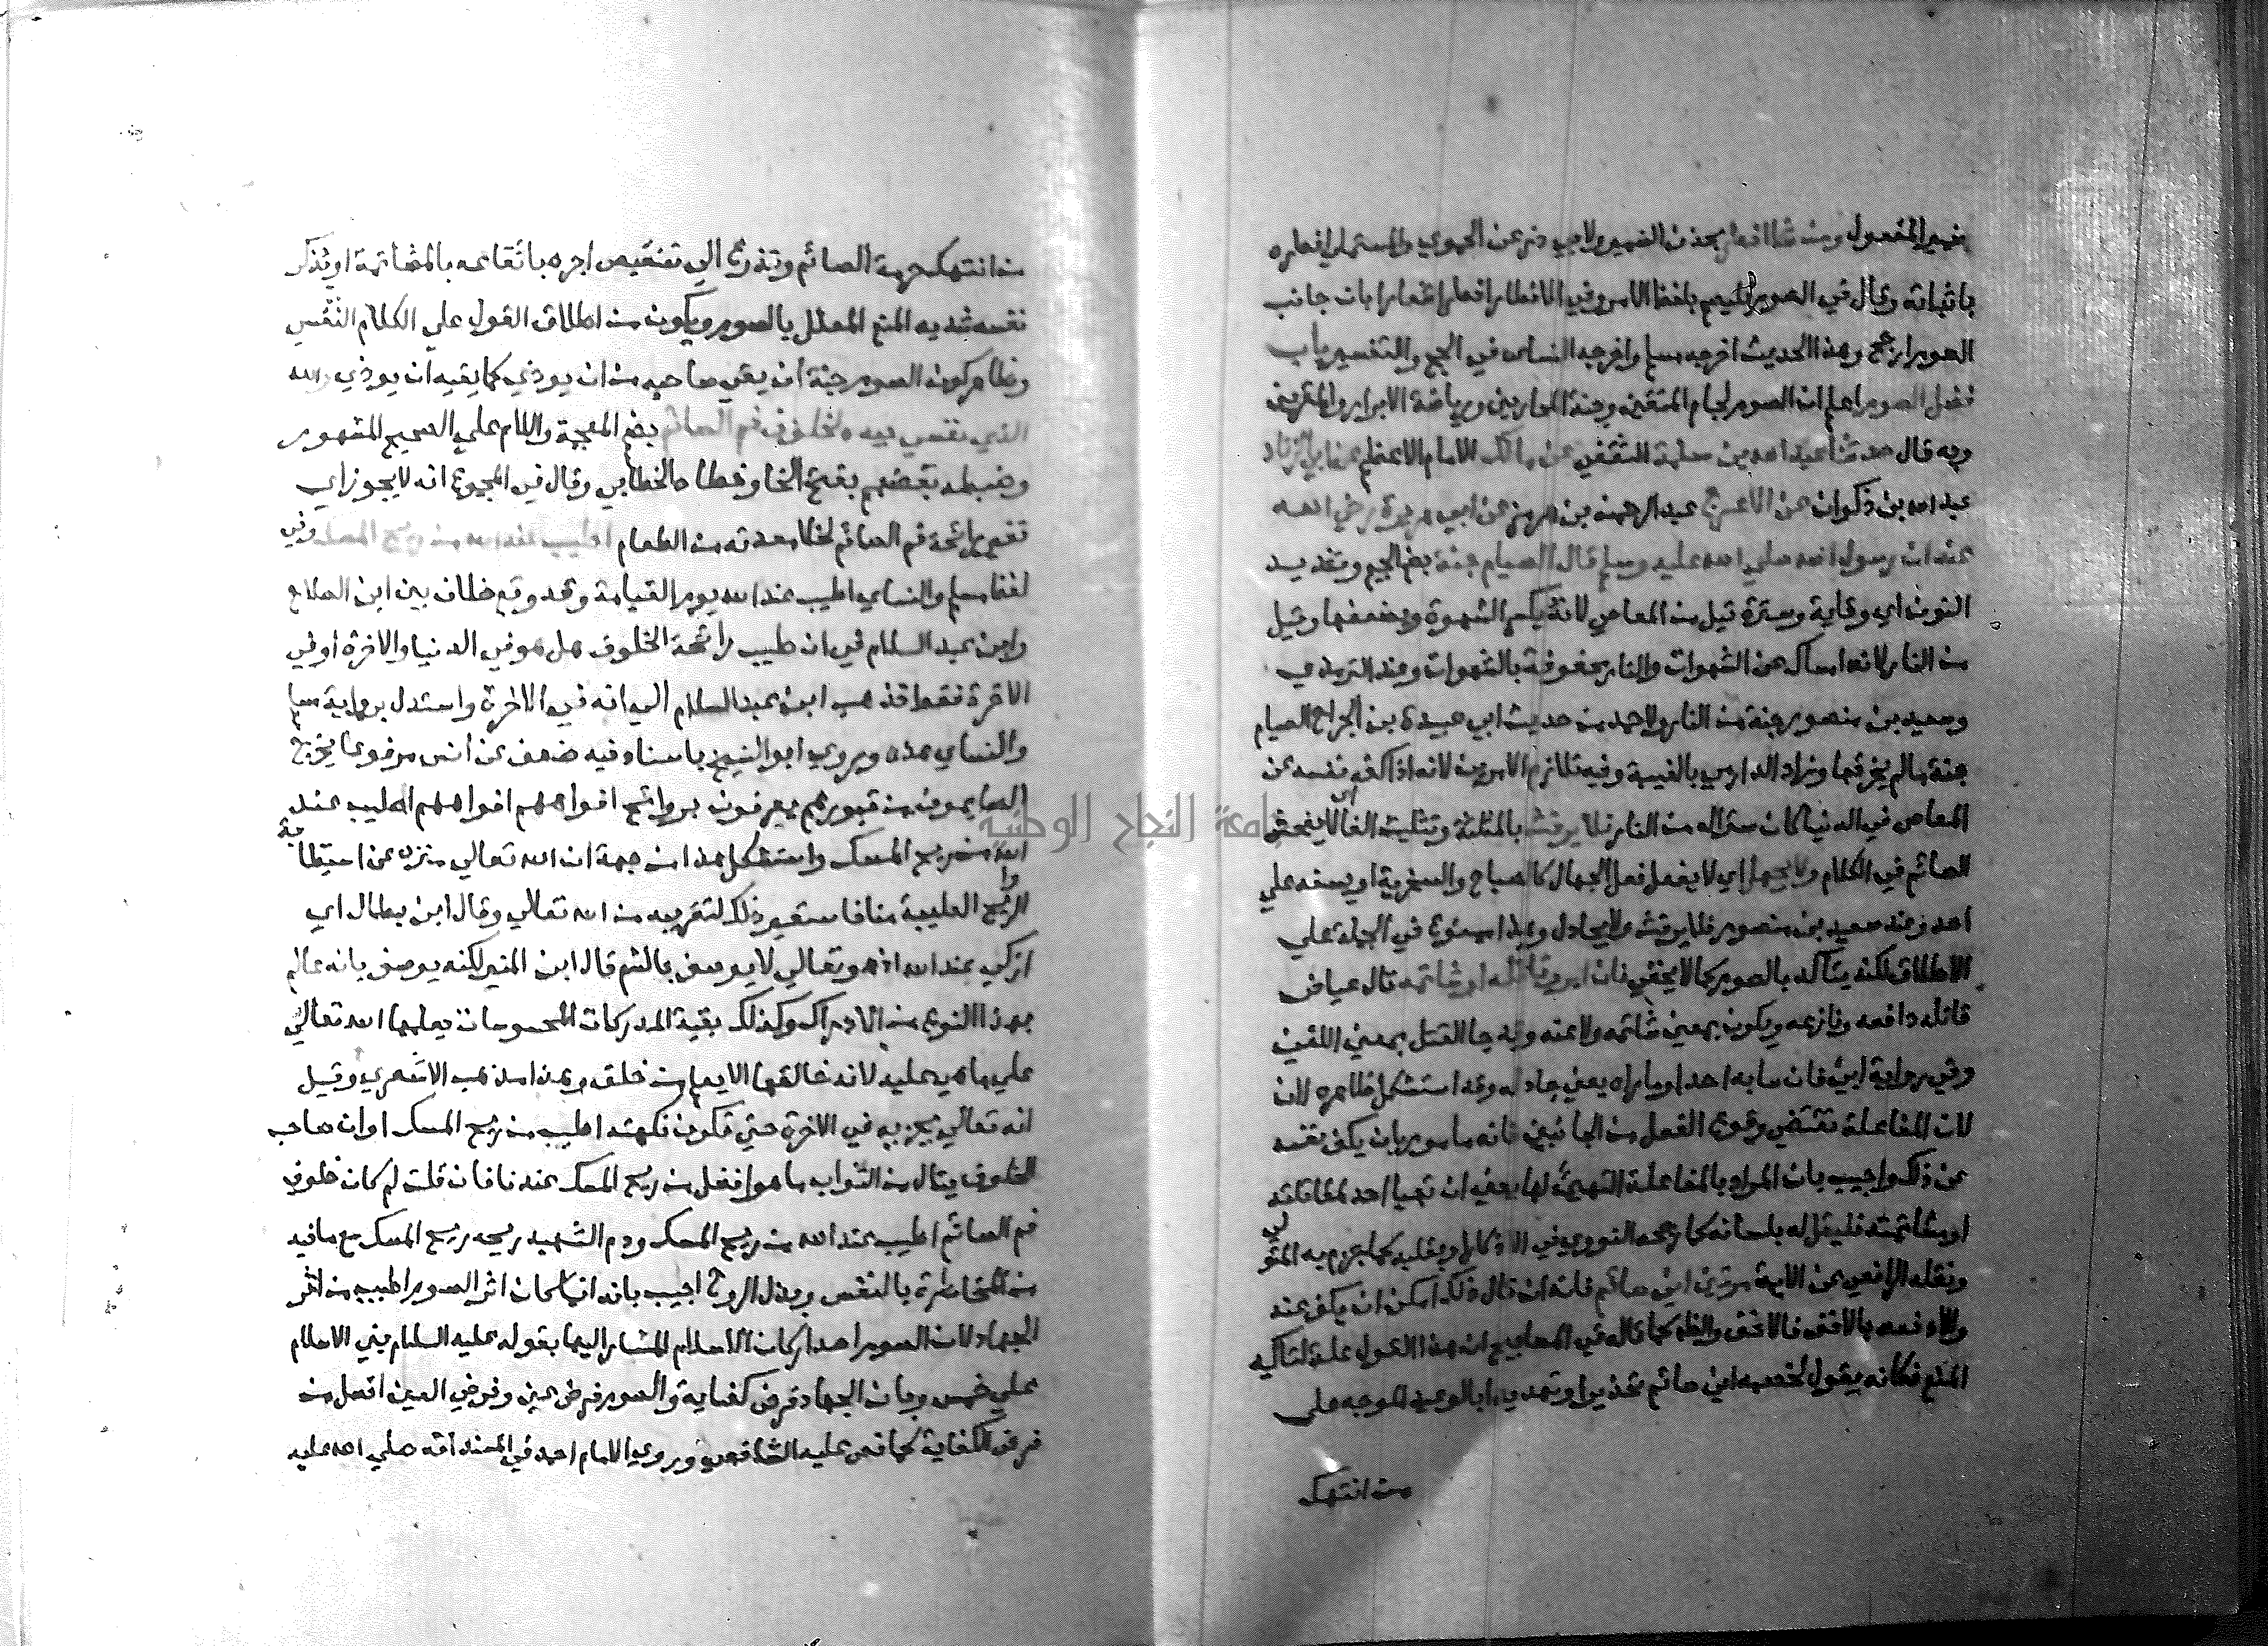 بضمير المفعول ومن شا افطر بحذف الضمير ولابي ذر عن الحموي والمستملي افطره
باثباته وقال في الصوم فليصم بلفظ الامر وفي الافطار افطر اشعارا بان جانب
الصوم ارجح وهذا الحديث اخرجه مسلم واخرجه النساي في الحج والتفسير باب
فضل الصوم اعلم ان الصوم لجام المتقين وجنة المحاربين ورياضة الابرار والمقربين
وبه قال حدثنا عبد الله بن مسلمة القعنبي عن مالك الامام الاعظم عن ابي الزناد
عبد الله بن ذكوان عن الاعرج عبد الرحمن بن هرمز عن ابي هريرة رضي الله
عنه ان رسول الله صلي الله عليه وسلم قال الصيام جنة بضم الجيم وتشديد
النون اي وقاية وسترة قيل من المعاصي لانه يكسر الشهوة ويضعفها وقيل
من النار لانه امساك عن الشهوات والنار محفوفة بالشهوات وعند الترمذي
وسعيد بن منصور جنة من النار ولاحمد من حديث ابي عبيدة بن الجراح الصيام
جنة ما لم يخرقها وزاد الدارمي بالغيبة وفيه تلازم الامرين لانه اذا كف نفسه عن
المعاصي في الدنيا كان سترا له من النار فلا يرفث بالمثلثة وتثليث الفا اي لا يفحش
الصائم في الكلام ولا يجهل اي لا يفعل فعل الجهال كالصياح والسخرية او يسفه علي
احد وعند سعيد بن منصور فلا يرفث ولا يجادل وهذا ممنوع في الجملة علي
الاطلاق لكنه يتاكد بالصوم كما لا يخفي فان امرؤ قاتله او شاتمه قال عياض
قاتله دافعه ونازعه ويكون بمعني شاتمه ولاعنه وقد جا القتل بمعني اللعن
وفي رواية ابي فان سابه احد او ماراه يعني جادله وقد استشكل ظاهره لان
لان المفاعلة تقتضي وقوع الفعل من الجانبين فانه مامور بان يكف نفسه
عن ذلك واجيب بان المراد بالمفاعلة التهيئ لها يعني ان تهيا احد لمقاتلته
او مشاتمته فليقل له بلسانه كما رجحه النووي في الاذكار او بقلبه كما جزم به المتولي
ونقله الرافعي عن الايمة مرتين اني صائم فانه ان قال ذلك امكن ان يكف عنه
والا دفعه بالاخف فالاخف والظاهر كما قاله في المصابيح ان هذا القول علة لتاكيد
المنع فكانه يقول لخصمه اني صائم تحذيرا وتهديدا بالوعيد الموجه علي
من انتهك
من انتهك حرمة الصائم وتذرع الي تنقيص اجره بايقاعه بالمشاتمة او يذكر
نفسه شديد المنع المعلل بالصوم ويكون من اطلاق القول علي الكلام النفسي
وظاهر كون الصوم جنة ان يقي صاحبه من ان يوذي كما يقيه ان يوذي والله
الذي نفسي بيده لخلوف فم الصائم بضم المعجمة واللام علي الصحيح المشهور
وضبطه بعضهم بفتح الخا وخطاه الخطابي وقال في المجموع انه لا يجوز اي
تغير رائحة فم الصائم لخلا معدته من الطعام اطيب عند الله من ريح المسك وفي
لفظ مسلم والنساي اطيب عند الله يوم القيامة وقد وقع خلاف بين ابن الصلاح
وابن عبد السلام في ان طيب رائحة الخلوف هل هو في الدنيا والاخرة او في
الاخرة فقط فذهب ابن عبد السلام الي انه في الاخرة واستدل برواية مسلم
والنساي هذه وروي ابو الشيخ باسناد فيه ضعف عن انس مرفوعا يخرج
الصايمون من قبورهم يعرفون بروائح افواههم افواههم اطيب عند
الله من ريح المسك واستشكل هذا من جهة ان الله تعالي منزه عن استطابة
الروايح الطيبة
ازكي عند الله اذ هو تعالي لا يوصف بالشم قال ابن المنير لكنه يوصف بانه عالم
بهذا النوع من الادراك وكذلك بقية المدركات المحسوسات يعلمها الله تعالي
علي ما هي عليه لانه خالقها الا يعلم من خلق وهذا مذهب الاشعري وقيل
انه تعالي يجزيه في الاخرة حتي تكون نكهته اطيب من ريح المسك او ان صاحب
الخلوف ينال من الثواب ما هو افضل من ريح المسك عندنا فان قلت لم كان خلوف
فم الصائم اطيب عند الله من ريح المسك ودم الشهيد ريحه ريح المسك مع ما فيه
من المخاطرة بالنفس وبذل الروح اجيب بانه انما كان اثر الصوم اطيب من اثر
الجهاد لان الصوم احد اركان الاسلام المشار اليها بقوله عليه السلام بني الاسلام
علي خمس وبان الجهاد فرض كفاية والصوم فرض عين وفرض العين افضل من
فرض الكفاية كما نص عليه الشافعي وروي الامام احمد في المسند انه صلي الله عليه
جامعة النجاح الوطنية